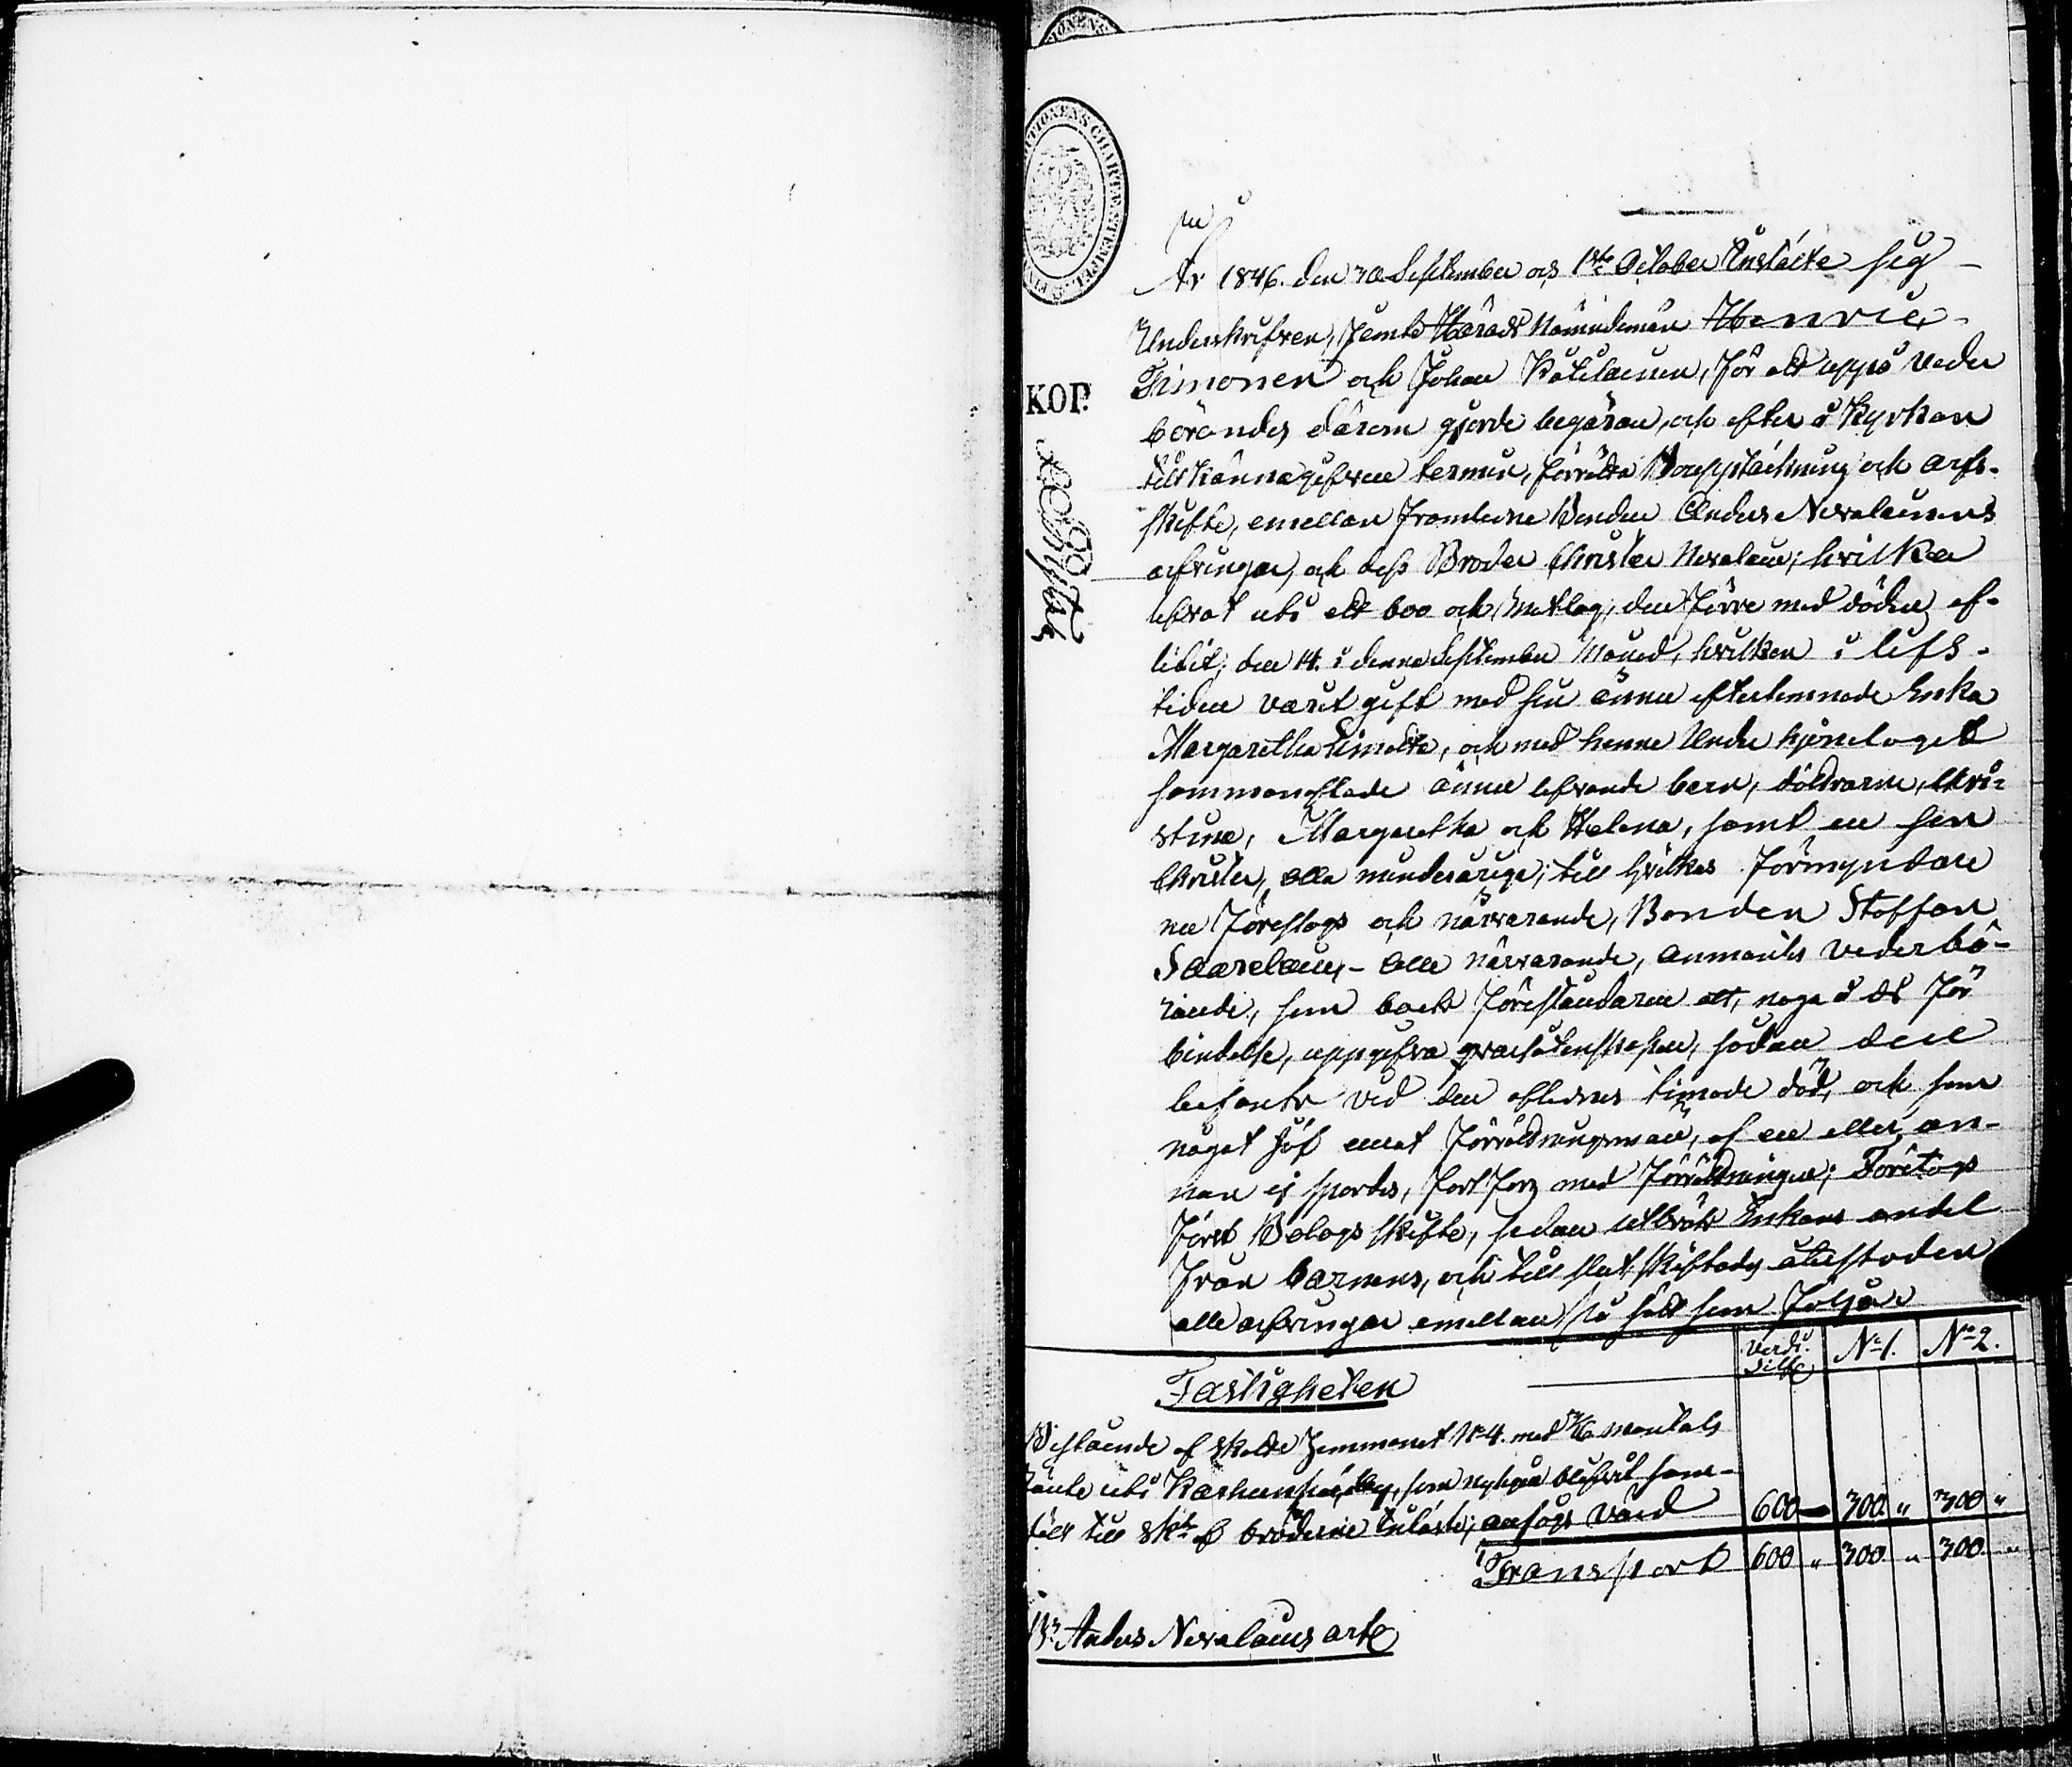 KOP.
År 1846. den 30 September och 1ste October Instälte sig
Underskrifven, jemte Härads Nämndemän Henric
Simonen och Johan Katilainen, för att uppå veder
börandes därom gjorde begäran, och efter i Kyrkan
tillkännagifven termin, förrätta Bouppteckning och arfs-
skifte, emellan framledne Bonden Anders Nevalainens
arfvingar, och dess Broder Christer Nevalain, hvilka
lefvat uti ett boo och matlag; den förre med döden af-
lidit, den 14. i denne September Månad, hvilken i lifs-
tiden varit gift med sin ännu efterlemnade Enka
Margaretha, och med henne under hjonelaget
sammanaflade ännu lefvande barn, döttrarne, Chri-
stina, Margaretha och Helena, samt en son
Christer, alla minderårige; till hvilkas förmyndare
nu föreslogs och närvarande, Bonden Staffan
Saarelain,- alle närvarande, anmantes vederbö-
rande, som boets föreståndaren att, noga å Ed för
bindelse, uppgifva qvarlåtenskapen, sådan den
befants vid den aflednes timade död, och som
något jäf emot förrättningsman, af en eller an-
nan ej spordes, fortfors med förrättningen; Företogs
först Bolags skifte, sedan utbröts Enkans andel
från barnens, och till slut skiftades återstoden
alle arfvingar emellan så sått som följer
Värdi. Silfr | No 1. | No 2.
Fastigheten
Bestående af Skatte Hemmanet No 4. med mantals
ränte uti som nyligen blifvit
till till Sk. af bröderne Inlöste; ansågs värd | 600 — | 300 " | 300 "
Transport | 600 " | 300 " | 300 "
Anders Nevalains arf